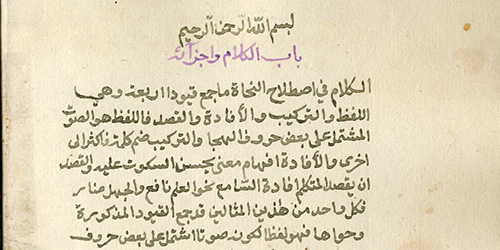 بسم الله الرحمن الرحيم
باب الكلام واجزائه
الكلام في اصطلاح النحاة ما جمع قيودا اربعة وهي
اللفظ والتركيب والأفادة والقصد فاللفظ هو الصوت
المشتمل على بعض حروف الهجا والتركيب ضم كلمة فاكثر الى
اخرى والأفادة افهام معنى يحسن السكوت عليه والقصد
ان يقصد المتكلم افادة السامع نحو العلم نافع والجهل ضار
فكل واحد من هذين المثالين قد جمع القيود المذكورة
وحواها فهو لفظ لكونه صوتا اشتمل على بعض حروف